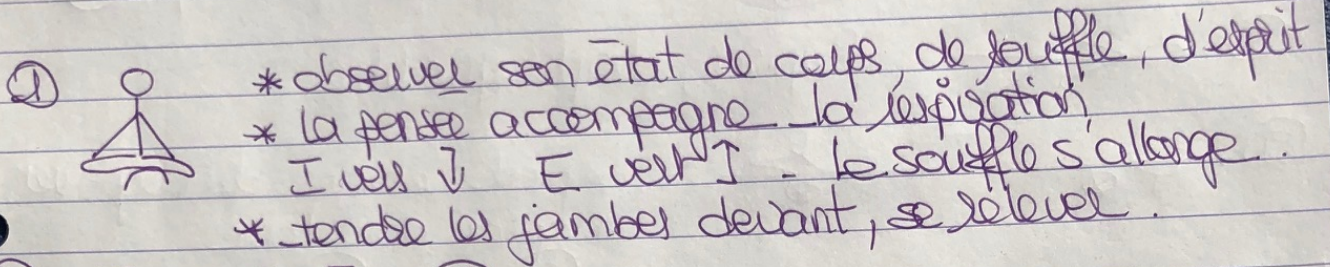 ① * observer son état de corps, de souffle, d'esprit
* la pensée accompagne la respiration
I vers ↓ E vers ↑ - le souffle s'allonge.
* tendre les jambes devant, se relever.